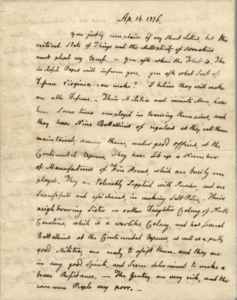 Ap. 14. 1776.
You justly complain of my short Letters, but the
critical State of Things and the Multiplicity of Avocations
must plead my Excuse. — you ask where the Fleet is. The
inclosed Papers will inform you. you ask what Sort of
Defence Virginia can make? I believe they will make
an able Defence. Their Militia and minute Men have
been some time employed in training themselves, and
they have Nine Battallions of regulars as they call them
maintained, among them, under good officers, at the
Continental Expence. They have set up a Number
of Manufactories of Fire Arms, which are busily em
ployed. They are tolerably supplied with Powder, and are
successfull and assiduous, in making Salt Petre. Their
neighbouring Sister or rather Daughter Colony of North
Carolina, which is a warlike Colony, and has several
Battallions at the Continental Expence, as well as a pretty
good Militia, are ready to assist them, and they are
in very good Spirits, and seem determined to make a
brave Resistance. — The Gentry are very rich, and the
common People very poor.